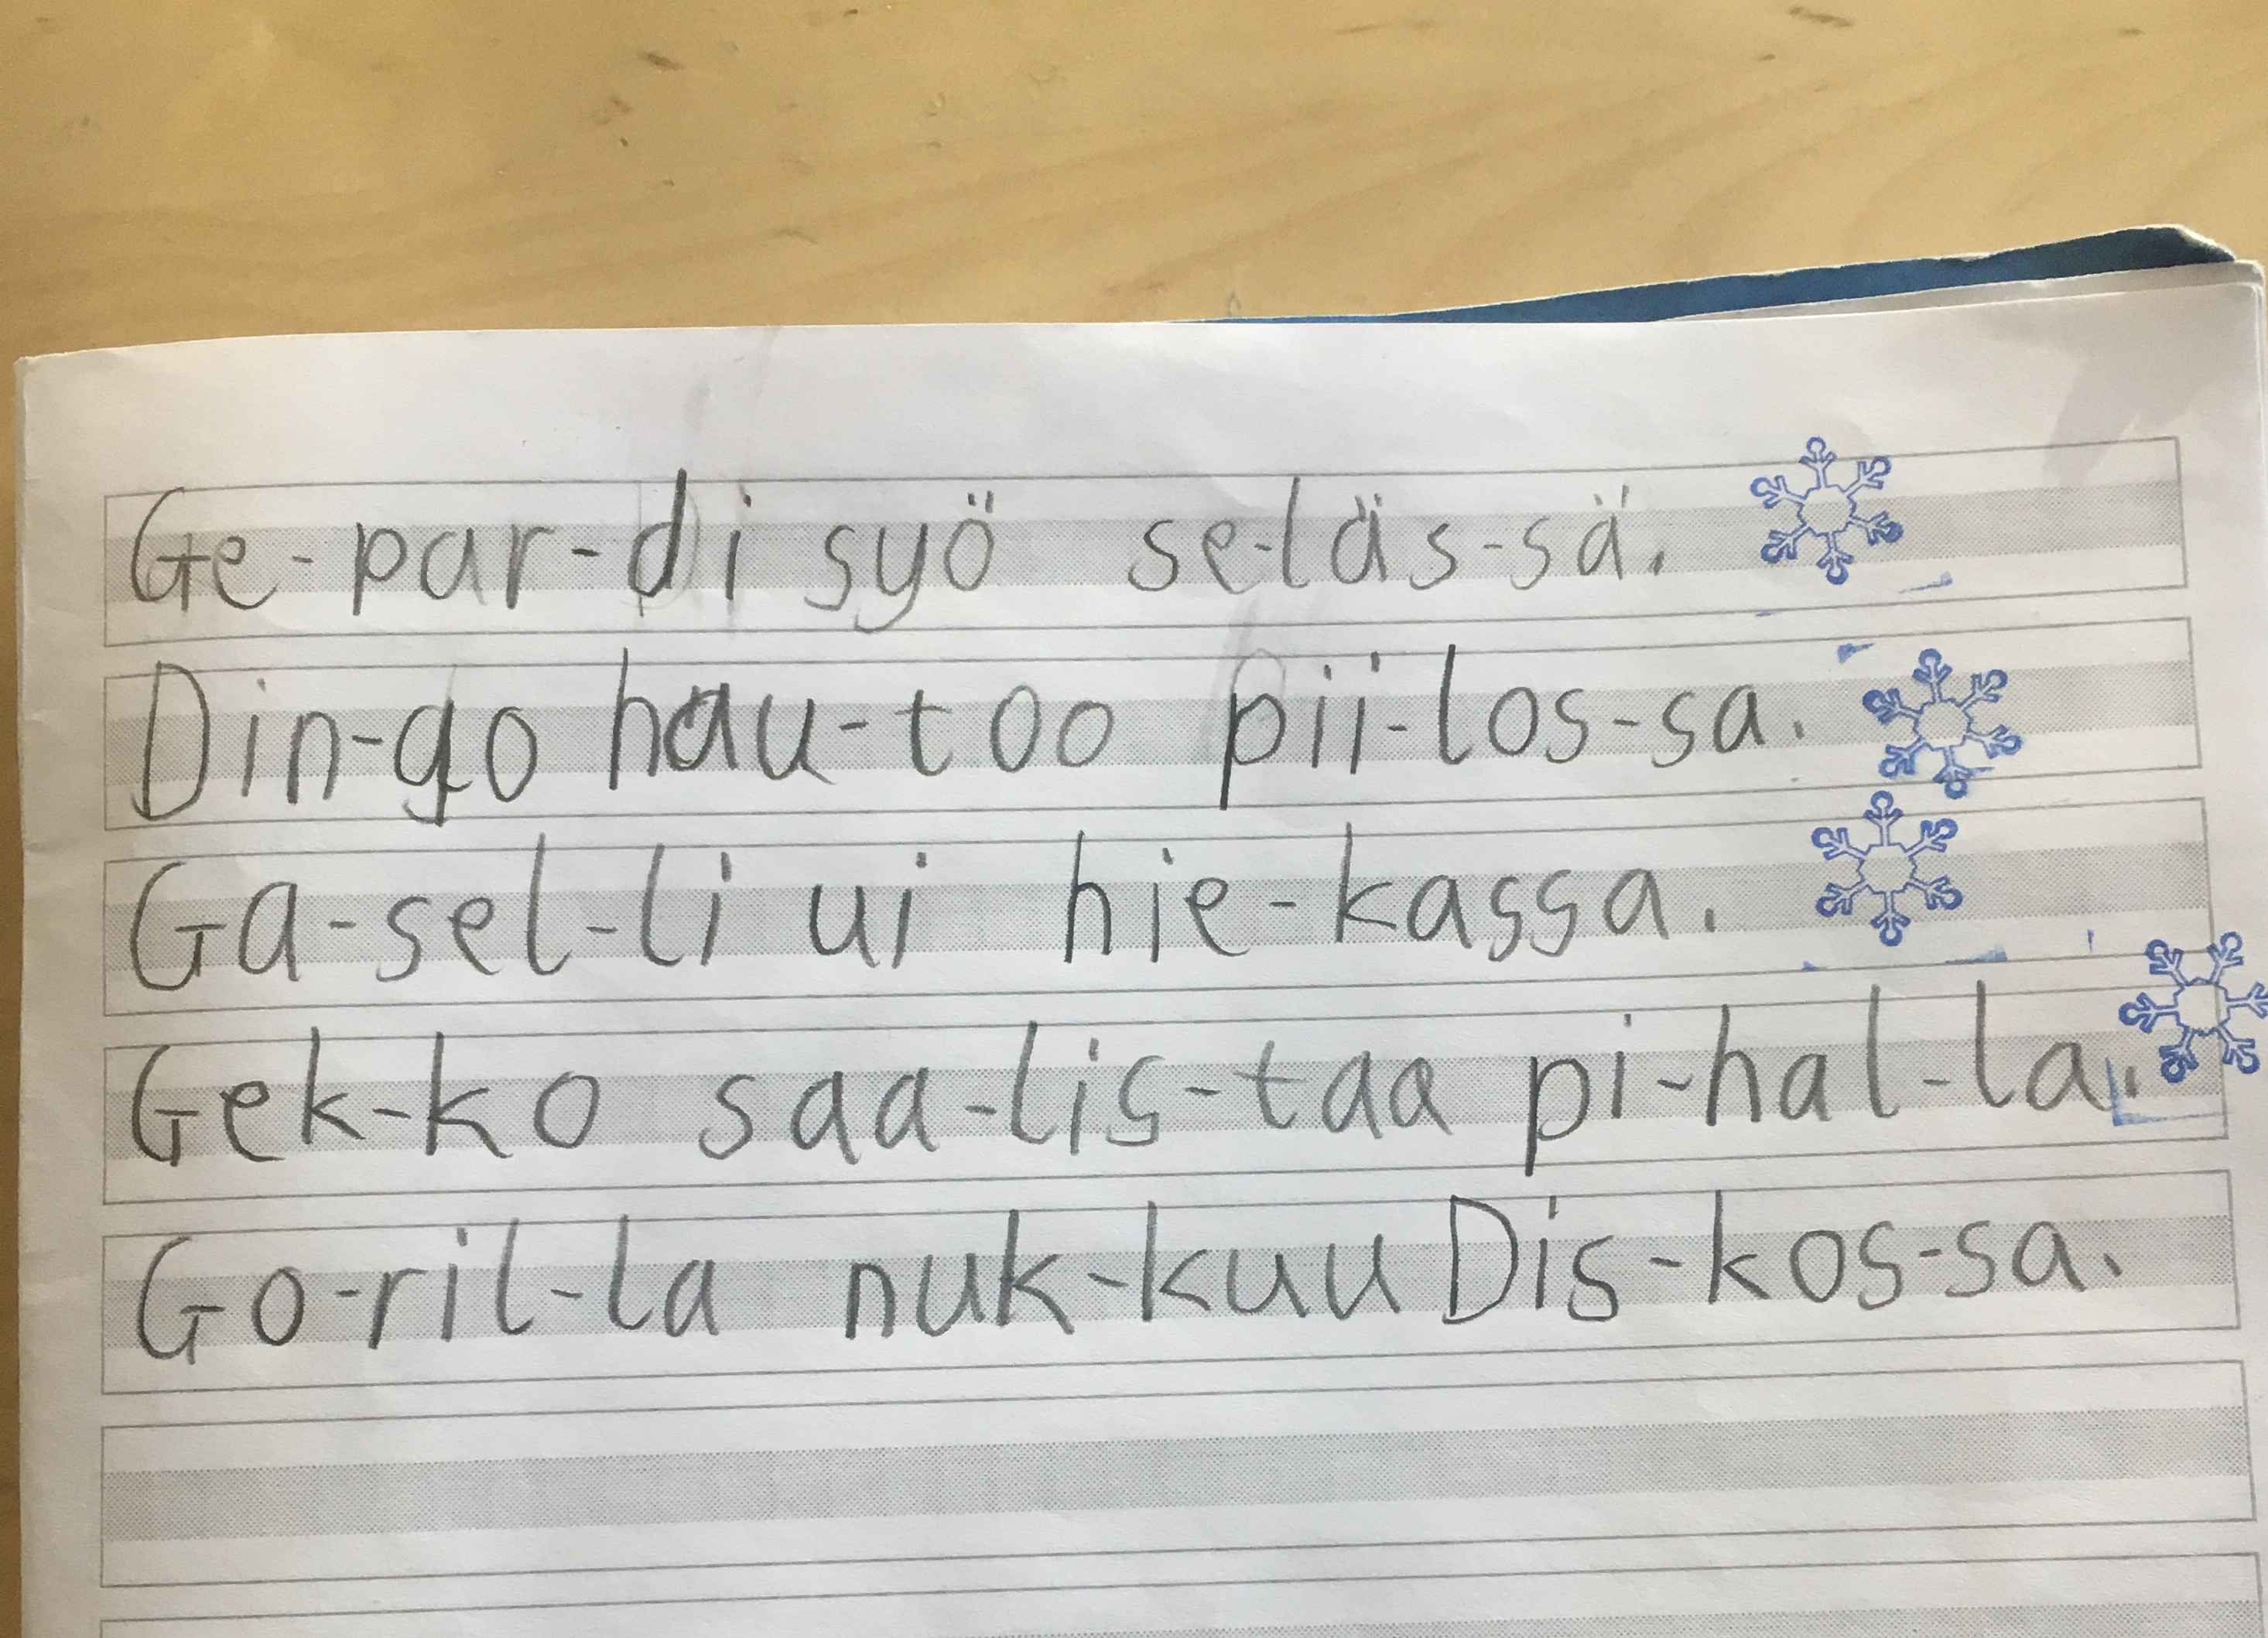 Ge-par-di syö se-läs-sä.
Din-go hau-too pii-los-sa.
Ga-sel-li ui hie-kassa.
Gek-ko saa-lis-taa pi-hal-la.
Go-ril-la nuk-kuu Dis-kos-sa.